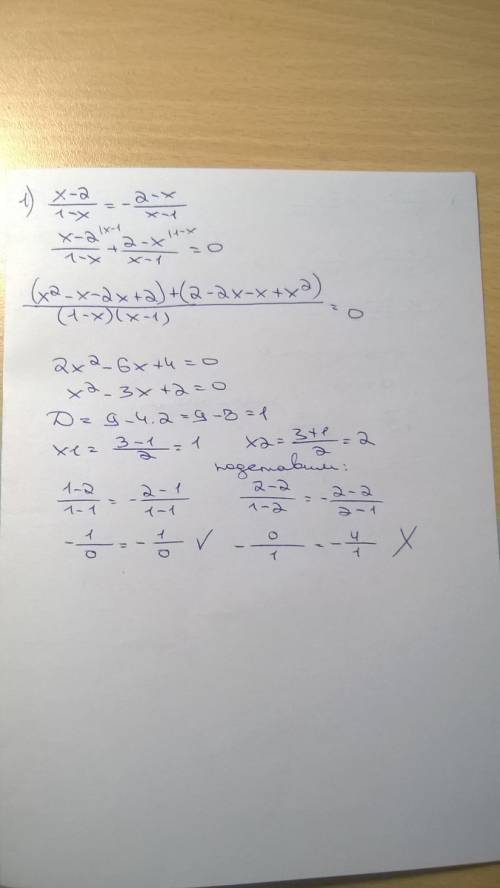 1) (x-2)/(1-x) = -(2-x)/(x-1)
(x-2)/(1-x) |x-1 + (2-x)/(x-1) |1-x = 0
((x²-x-2x+2)+(2-2x-x+x²))/((1-x)(x-1)) = 0
2x²-6x+4=0
x²-3x+2=0
D= 9-4·2=9-8=1
x1= (3-1)/2 = 1 x2= (3+1)/2 = 2
подставим:
(1-2)/(1-1) = -(2-1)/(1-1) (2-2)/(1-2) = -(2-2)/(2-1)
-1/0 = -1/0 ✓ -0/1 = -4/1 X